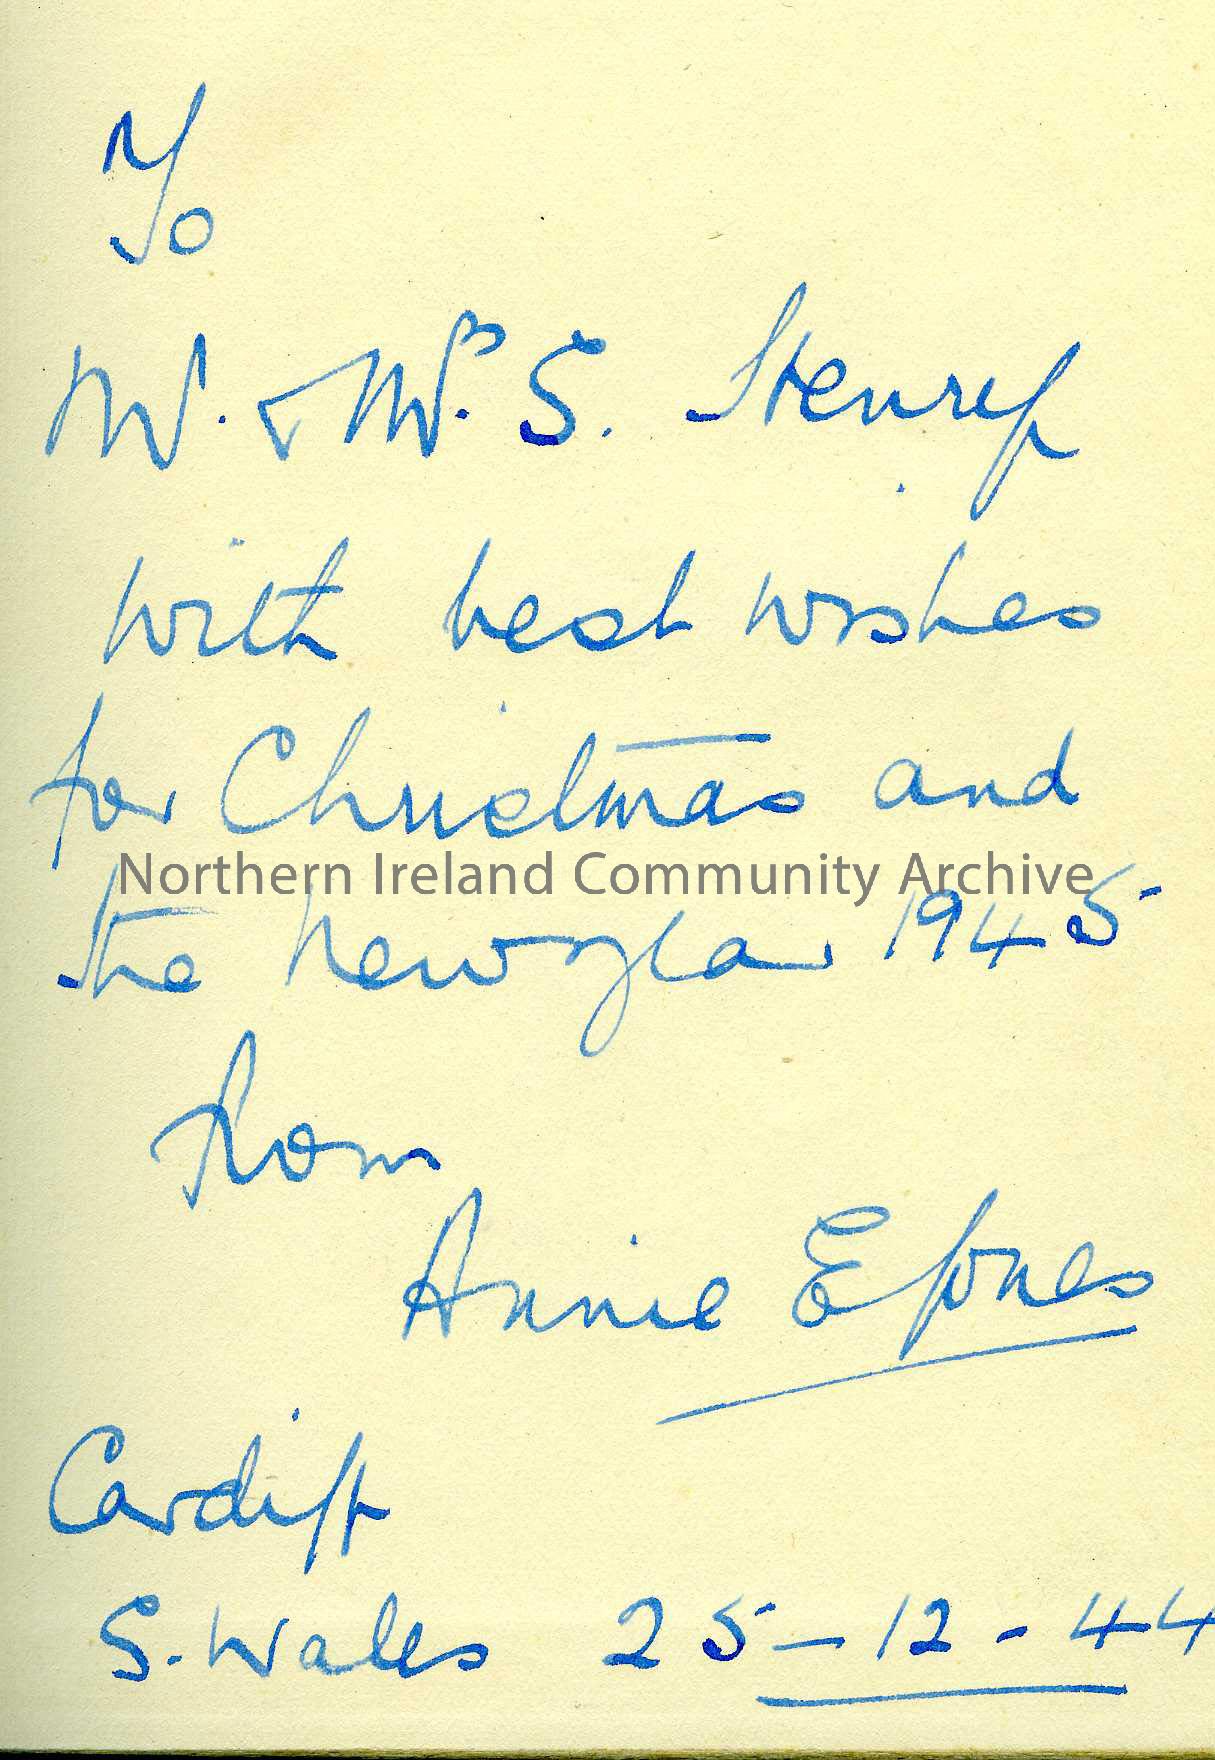 To
Mr. & Mrs. S. Henry
With best wishes
for Christmas and
Northern Ireland Community Archive
the New year 1945
from
Annie E Jones
Cardiff
S. Wales 25-12-44